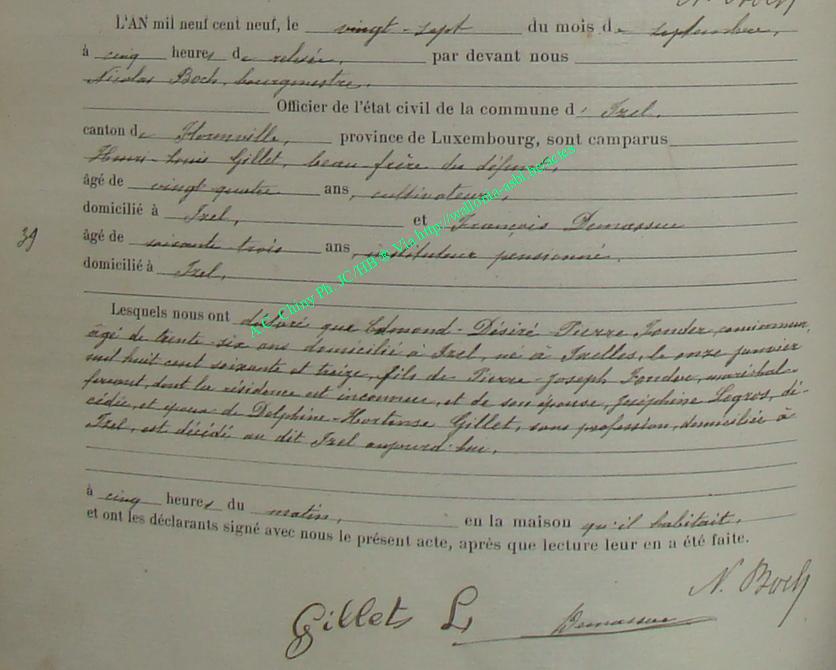 N. Boch
L'AN mil neuf cent neuf, le vingt-sept du mois de septembre,
à cinq heures de relevée, par devant nous
Nicolas Boch, bourgmestre,
Officier de l'état civil de la commune d'Izel,
canton de Florenville, province de Luxembourg, sont camparus
Henri-Louis Gillet, beau frère du défunt,
âgé de vingt quatre ans, cultivateur,
domicilié à Izel, et François Demassue
âgé de soixante trois ans, instituteur pensionné,
39
domicilié à Izel,
Lesquels nous ont déclaré que Edmond-Désiré Pierre Fonder, camionneur,
âgé de trente-six ans domicilié à Izel, né à Ixelles, le onze janvier
mil huit cent soixante et treize, fils de Pierre-Joseph Fonder, maréchal-
ferrant, dont la résidence est inconnue, et de son épouse, Joséphine Legros, dé-
cédée, et époux de Delphine-Hortense Gillet, sans profession, domiciliée à
Izel, est décédé au dit Izel aujourd'hui,
à cinq heures du matin, en la maison qu'il habitait,
et ont les déclarants signé avec nous le présent acte, après que lecture leur en a été faite.
Gillet L
Demassue
N. Boch
A.C. Chiny Ph. JC/HB @ Via http://wallonia-asbl.be/actes